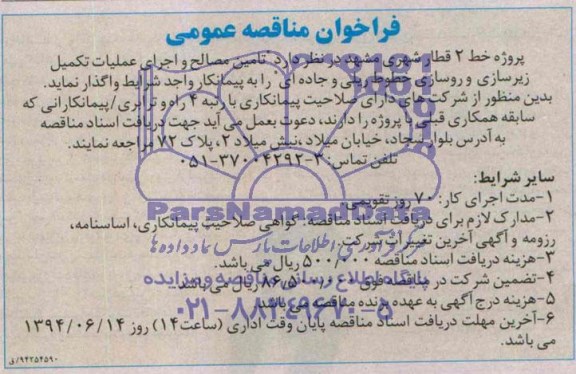 فراخوان مناقصه عمومی
پروژه خط ۲ قطار شهری مشهد در نظر دارد تامین مصالح و اجرای عملیات تکمیل
زیرسازی و روسازی خطوط ریلی و جاده ای را به پیمانکار واجد شرایط واگذار نماید.
بدین منظور از شرکت های دارای صلاحیت پیمانکاری با رتبه ۴ راه و ترابری/پیمانکارانی که
سابقه همکاری قبلی با پروژه را دارند، دعوت بعمل می آید جهت دریافت اسناد مناقصه
به آدرس بلوار سجاد، خیابان میلاد ،نبش میلاد ۲، پلاک ۷۲ مراجعه نمایند.
تلفن تماس: ۲-۳۷۰۰۴۲۹۲-۰۵۱
سایر شرایط:
۱-مدت اجرای کار: ۷۰ روز تقویمی.
۲-مدارک لازم برای دریافت اسناد مناقصه: گواهی صلاحیت پیمانکاری، اساسنامه،
رزومه و آگهی آخرین تغییرات شرکت.
۳-هزینه دریافت اسناد مناقصه ۵۰۰/۰۰۰ ریال می باشد.
۴-تضمین شرکت در مناقصه فوق ریال می باشد.
۵-هزینه درج آگهی به عهده برنده مناقصه می باشد.
۶-آخرین مهلت دریافت اسناد مناقصه پایان وقت اداری (ساعت۱۴) روز ۱۳۹۴/۰۶/۱۴
می باشد.
۹۴۲۵۴۵۹۰/ق
ParsNamadData
گردآوری اطلاعات پارس نماد داده ها
پایگاه اطلاع رسانی مناقصه و مزایده
۰۲۱-۸۸۳۴۹۶۷۰-۵